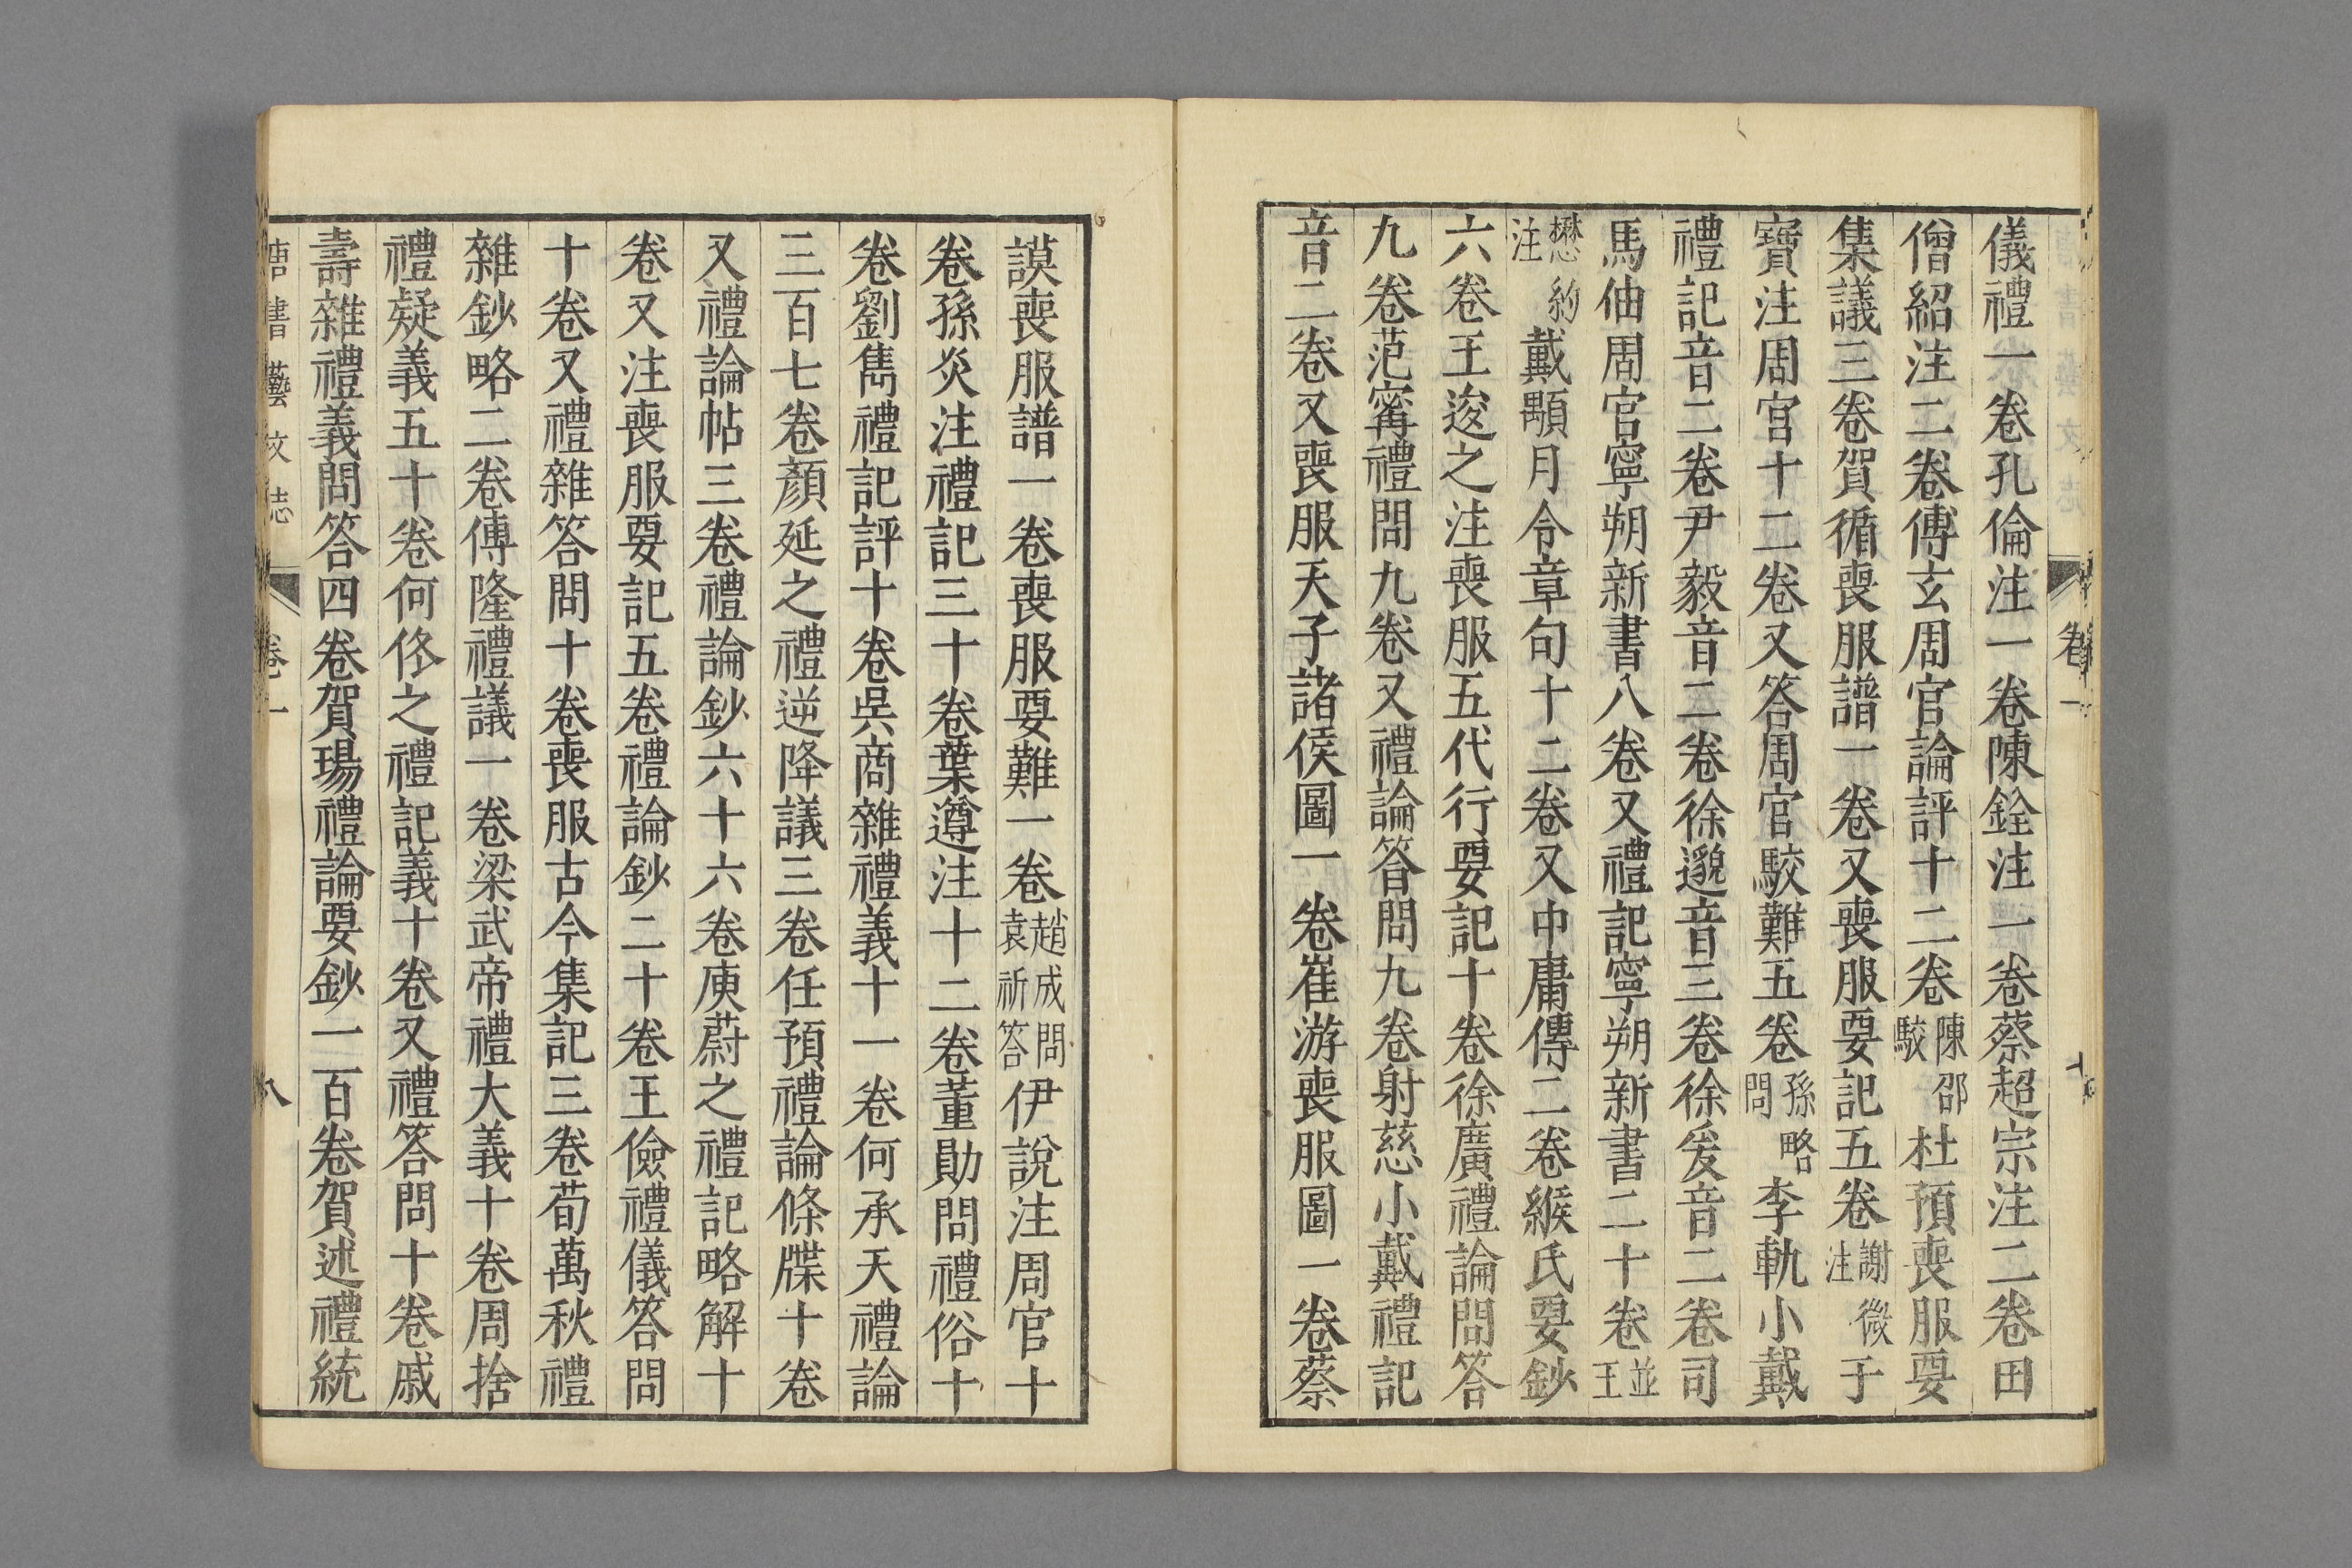 儀禮一卷孔倫注一卷陳銓注一卷蔡超宗注二卷田
僧紹注二卷傅玄周官論評十二卷陳邵駮杜預喪服要
集議三卷賀循喪服譜一卷又喪服要記五卷謝微注于
寶注周官十二卷又答周官駮難五卷孫略問李軌小戴
禮記音二卷尹毅音二卷徐邈音三卷徐爰音二卷司
馬伷周官寧朔新書八卷又禮記寧朔新書二十卷並王
懋約注戴顒月令章句十二卷又中庸傳二卷緱氏要鈔
六卷王逡之注喪服五代行要記十卷徐廣禮論問答
九卷范甯禮問九卷又禮論答問九卷射慈小戴禮記
音二卷又喪服天子諸侯圖一卷崔游喪服圖一卷蔡
謨喪服譜一卷喪服要難一卷趙成問袁祈答伊說注周官十
卷孫炎注禮記三十卷葉遵注十二卷董勛問禮俗十
卷劉雋禮記評十卷吳商雜禮義十一卷何承天禮論
三百七卷顏延之禮逆降議三卷任預禮論條牒十卷
又禮論帖三卷禮論鈔六十六卷庾蔚之禮記略解十
卷又注喪服要記五卷禮論鈔二十卷王儉禮儀答問
十卷又禮雜答問十卷喪服古今集記三卷荀萬秋禮
雜鈔略二卷傅隆禮議一卷梁武帝禮大義十卷周捨
禮疑義五十卷何佟之禮記義十卷又禮答問十卷戚
壽雜禮義問答四卷賀瑒禮論要鈔一百卷賀述禮統
唐書藝文志 卷一 八